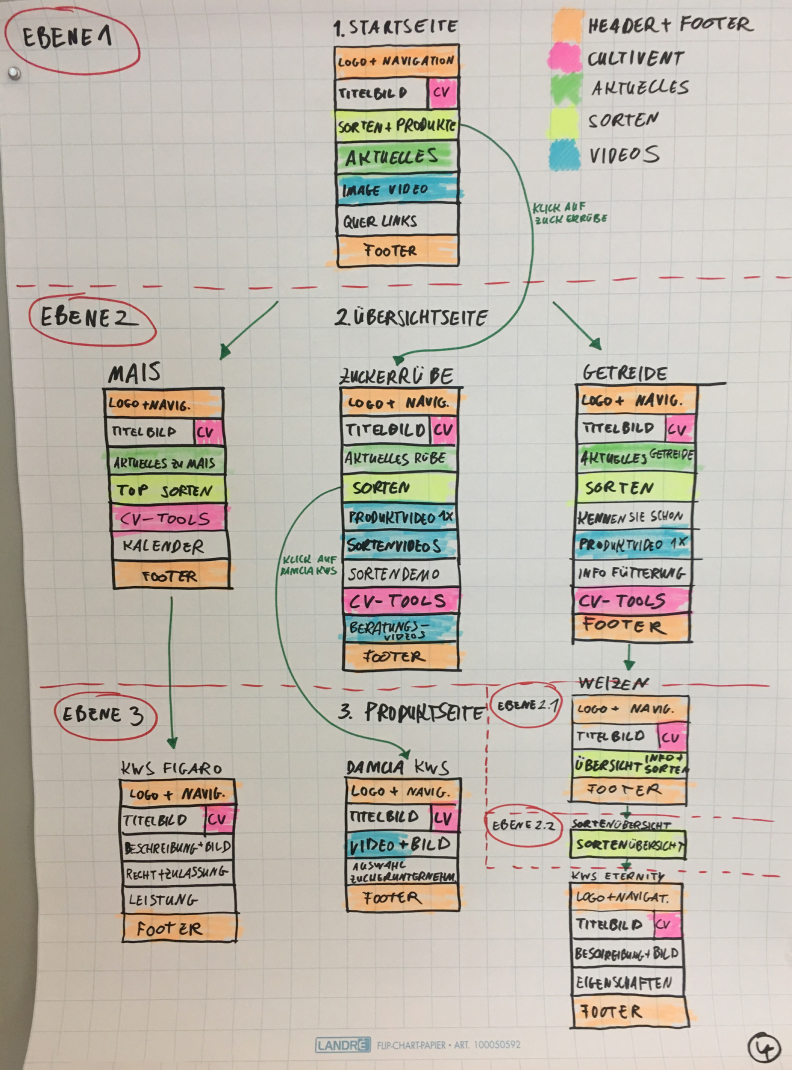 EBENE 1
1. STARTSEITE
LOGO + NAVIGATION
TITELBILD CV
SORTEN + PRODUKTE
AKTUELLES
IMAGE VIDEO
QUER LINKS
FOOTER
HEADER + FOOTER
CULTIVENT
AKTUELLES
SORTEN
VIDEOS
KLICK AUF
ZUCKERRÜBE
EBENE 2
2. ÜBERSICHTSEITE
MAIS
LOGO + NAVIG.
TITELBILD CV
AKTUELLES ZU MAIS
TOP SORTEN
CV-TOOLS
KALENDER
FOOTER
ZUCKERRÜBE
LOGO + NAVIG.
TITELBILD CV
AKTUELLES RÜBE
SORTEN
PRODUKTVIDEO 1X
SORTENVIDEOS
SORTENDEMO
CV-TOOLS
BERATUNGS-
VIDEOS
FOOTER
KLICK AUF
DAMCIA KWS
GETREIDE
LOGO + NAVIG.
TITELBILD CV
AKTUELLES GETREIDE
SORTEN
KENNEN SIE SCHON
PRODUKTVIDEO 1X
INFO FÜTTERUNG
CV-TOOLS
FOOTER
EBENE 3
3. PRODUKTSEITE
KWS FIGARO
LOGO + NAVIG.
TITELBILD CV
BESCHREIBUNG + BILD
RECHT + ZULASSUNG
LEISTUNG
FOOTER
DAMCIA KWS
LOGO + NAVIG.
TITELBILD CV
VIDEO + BILD
AUSWAHL
ZUCKERUNTERNEHM.
FOOTER
EBENE 2.1
WEIZEN
LOGO + NAVIG.
TITELBILD CV
ÜBERSICHT INFO +
SORTEN
FOOTER
EBENE 2.2
SORTENÜBERSICHT
SORTENÜBERSICHT
KWS ETERNITY
LOGO + NAVIGAT.
TITELBILD CV
BESCHREIBUNG + BILD
EIGENSCHAFTEN
FOOTER
LANDRÉ FLIP-CHART-PAPIER • ART. 100050592
4